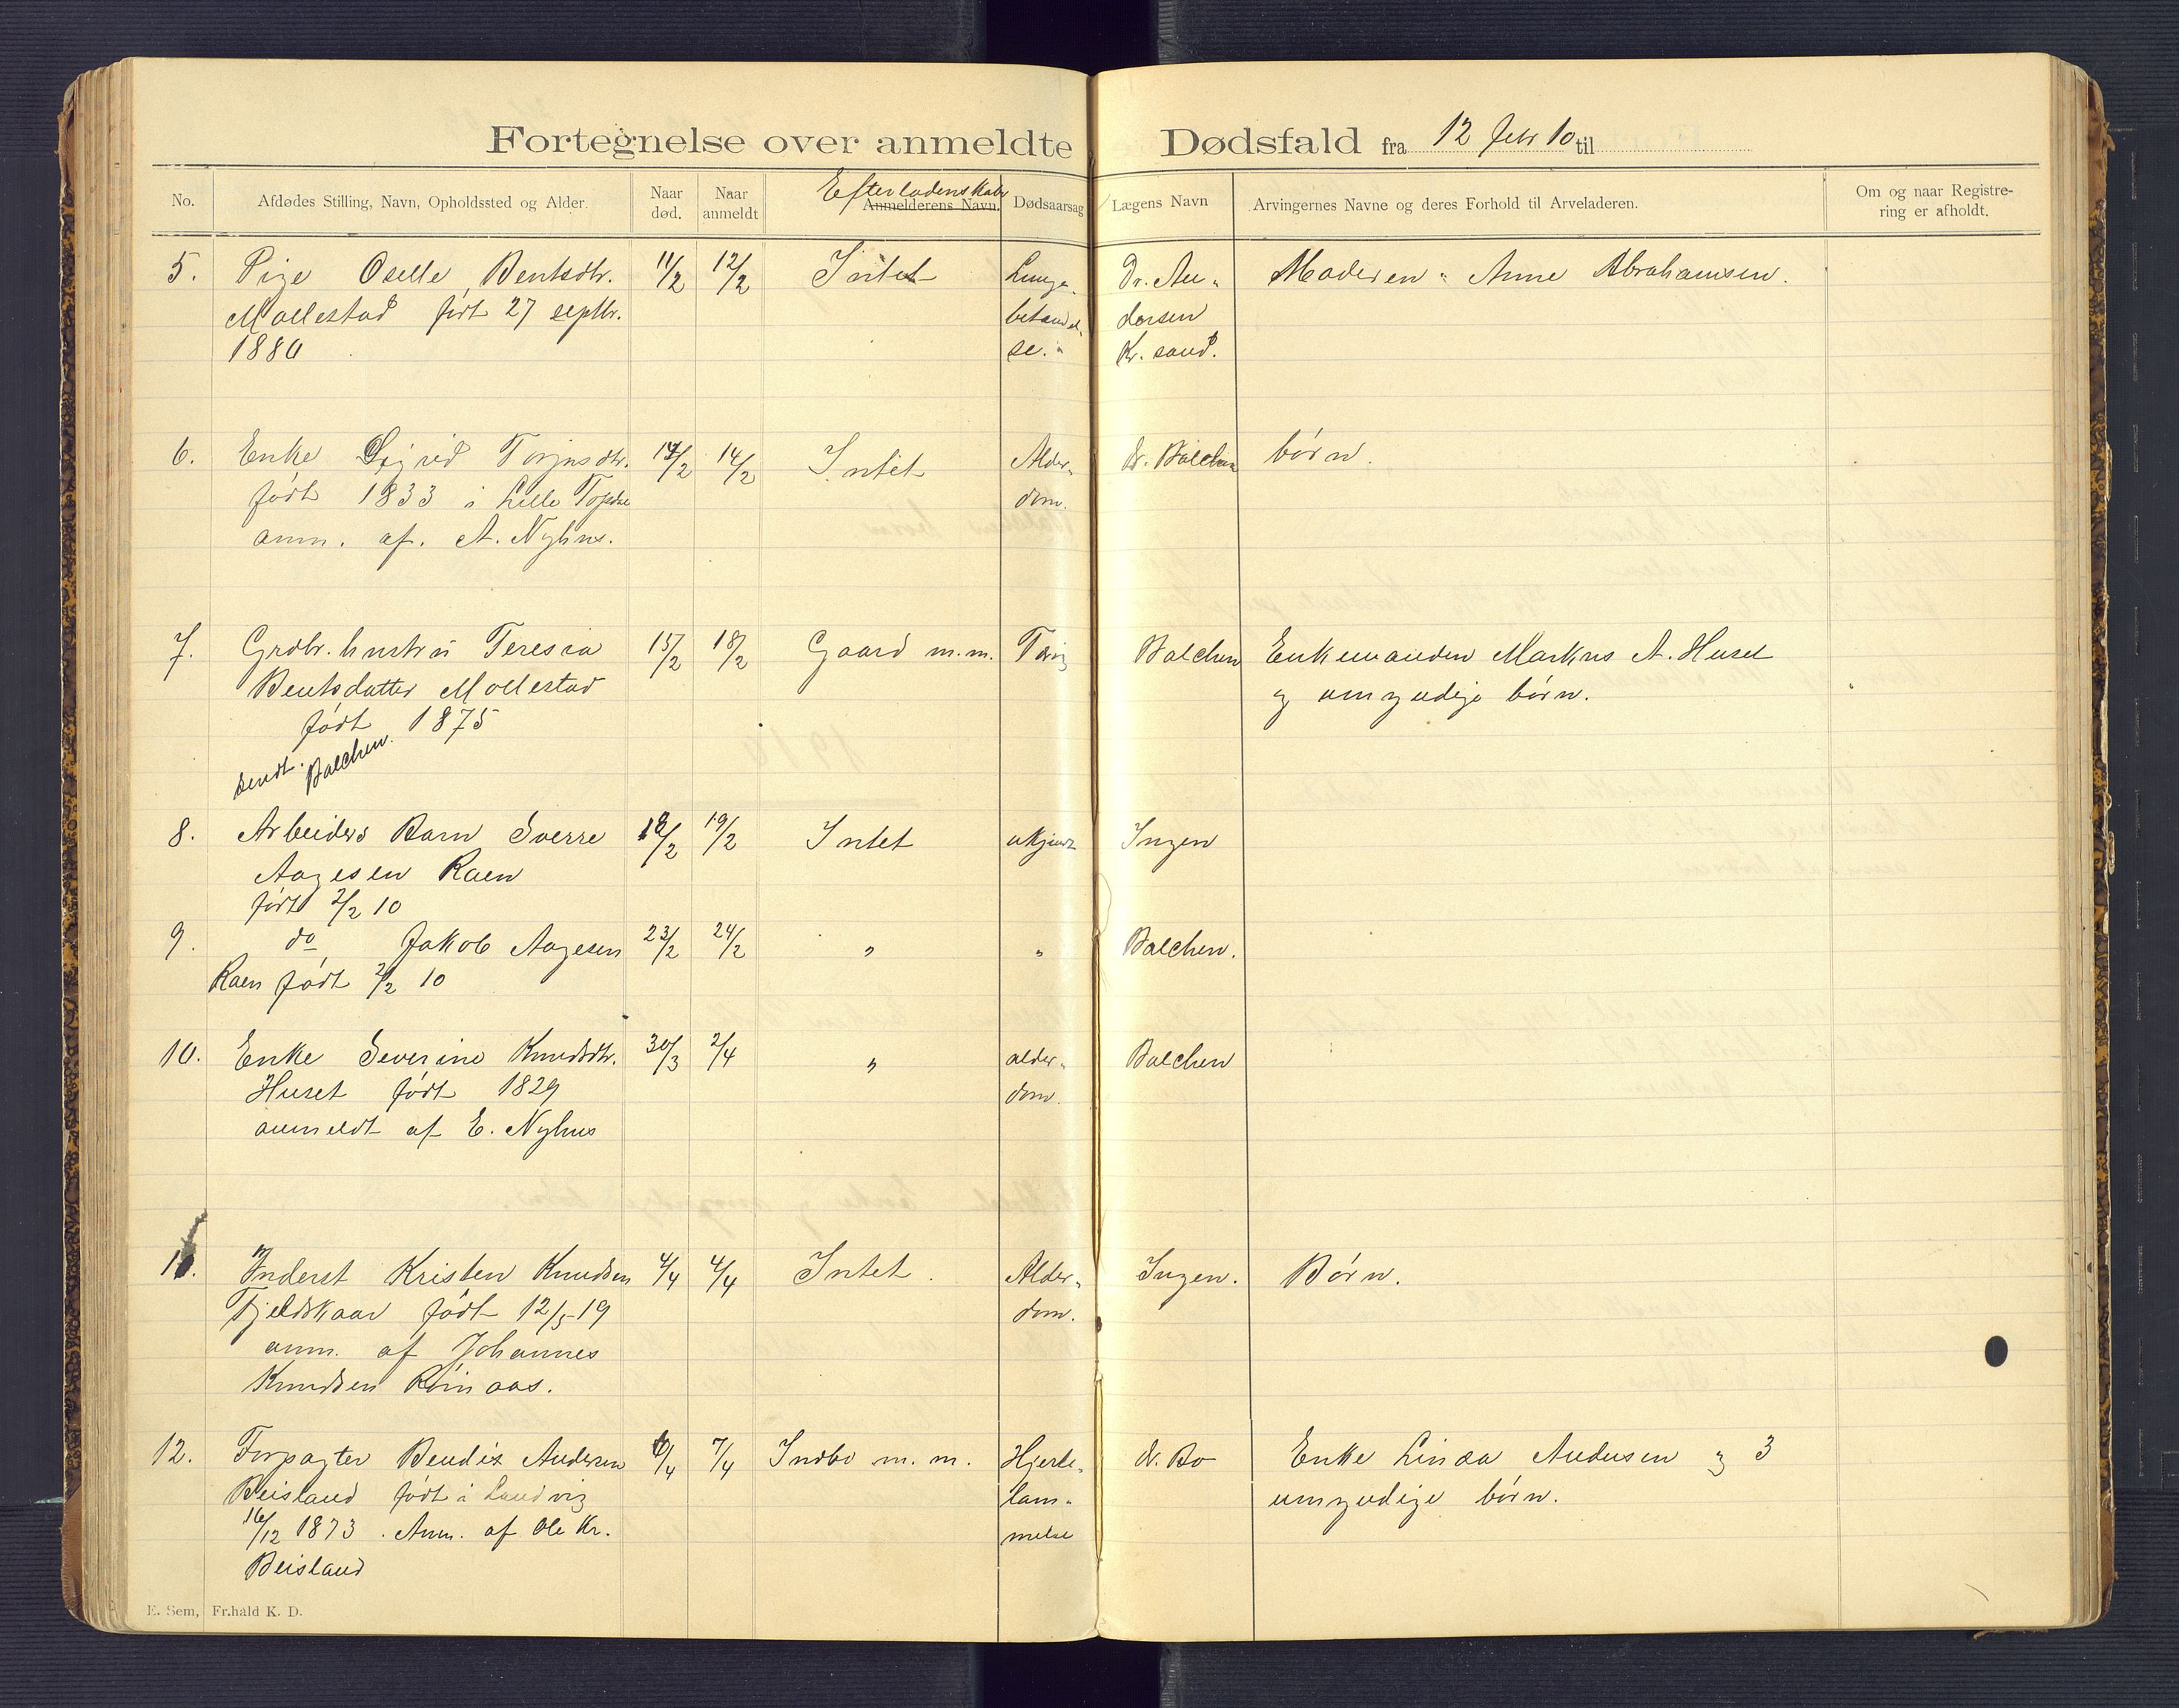 Fortegnelse over anmeldte Dødsfald fra 12 febr 10 til
No. Afdødes Stilling, Navn, Opholdssted og Alder. Naar død. Naar anmeldt Efterladenskaber Anmelderens Navn. Dødsaarsag Lægens Navn Arvingernes Navne og deres Forhold til Arveladeren. Om og naar Registrering er afholdt.
5. Pige Oselle Bentsdtr. 11/2 12/2 Intet Lunge- Dr. An- Moderen Anne Abrahamsen.
Mollestad født 27 septbr. betændel- dersen
1880 se. Kr. sand.
6. Enke Sigrid Torjusdtr. 14/2 Intet Alder- dr. Balchen børn.
født 1833 i Lille Topdal dom.
anm. af. A. Nyhus.
7. Grdbr. hustru Teresia 15/2 18/2 Gaard m.m. Tæring Balchen Enkemanden Markus A. Huset
Bentsdatter Mollestad og umyndige børn.
født 1875
Sendt. Balchen.
8. Arbeiders Barn Sverre 18/2 19/2 Intet ukjendt Ingen
Aagesen Raen
født 2/2 10
9. do Jakob Aagesen 23/2 24/2 " " Balchen.
Raen født 2/2 10
10. Enke Severine Knudsdtr. 30/3 2/4 " alder- Balchen
Huset født 1829 dom.
anmeldt af E. Nyhus
11. Inderst Kristen Knudsen 4/4 4/4 Intet. Alder- Ingen. Børn.
Fjeldskaar født 12/5 19 dom.
anm. af Johannes
Knudsen Røinaas.
12. Forpagter Bendix Andersen 6/4 7/4 Indbo m. m. Hjerte- dr. Bo Enke Linda Andersen og 3
Beisland født i Landvig lam- umyndige børn.
16/12 1873. Anm. af Ole Kr. melse
Beisland
E. Sem, Fr.hald K. D.